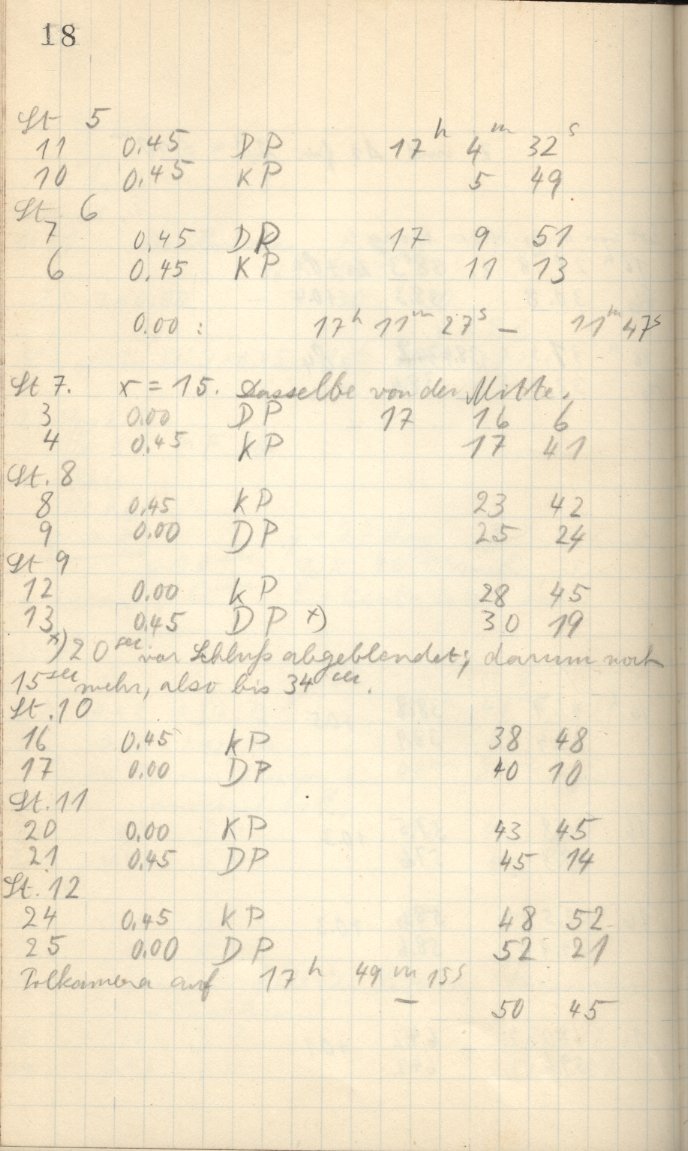 18
St 5
11 0.45 DP 17h 4m 32s
10 0.45 KP 5 49
St. 6
7 0.45 DP 17 9 51
6 0.45 KP 11 13
0.00 : 17h 11m 27s – 11m 47s
St 7. x = 15. Dasselbe von der Mitte.
3 0.00 DP 17 16 6
4 0.45 KP 17 41
St. 8
8 0.45 KP 23 42
9 0.00 DP 25 24
St 9
12 0.00 KP 28 45
13 0.45 DP x) 30 19
x) 20 sec vor Schluß abgeblendet; darum noch
15 sec mehr, also bis 34 sec.
St. 10
16 0.45 KP 38 48
17 0.00 DP 40 10
St. 11
20 0.00 KP 43 45
21 0.45 DP 45 14
St. 12
24 0.45 KP 48 52
25 0.00 DP 52 21
Polkamera auf 17h 49m 15s
– 50 45